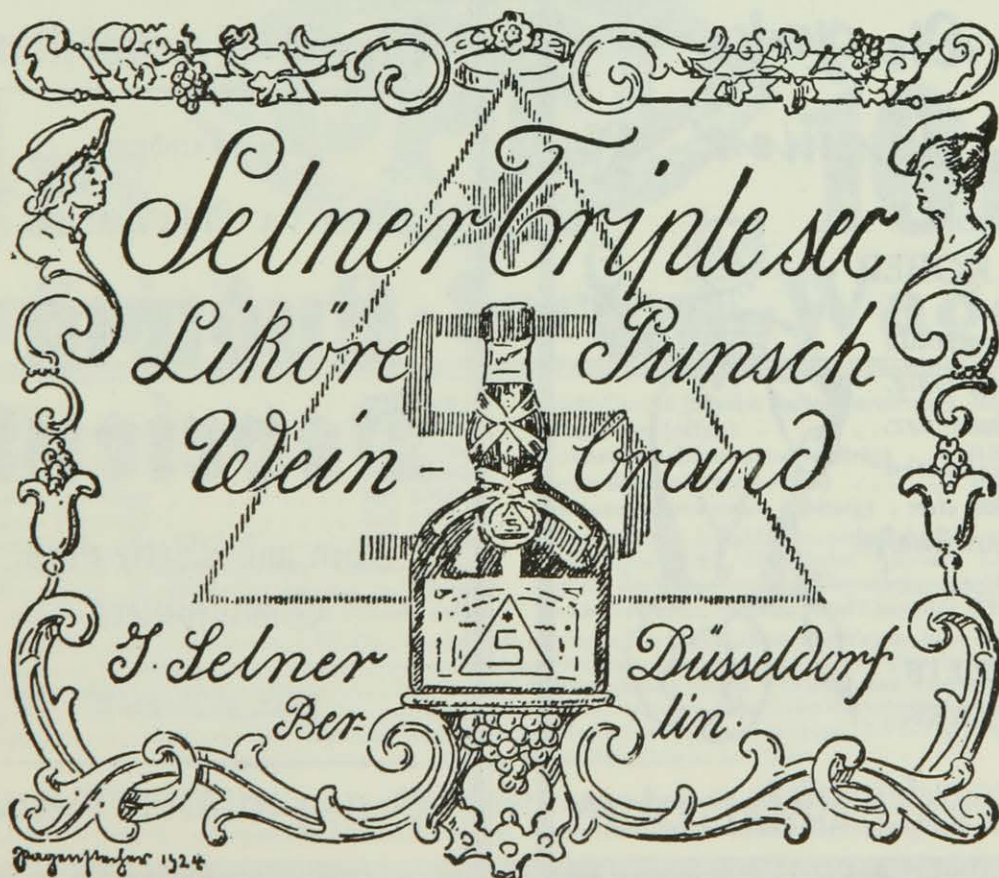 Selner Triple sec
Liköre Punsch
Wein- brand
S
J. Selner Düsseldorf
Ber- lin.
Pagenstecher 1924